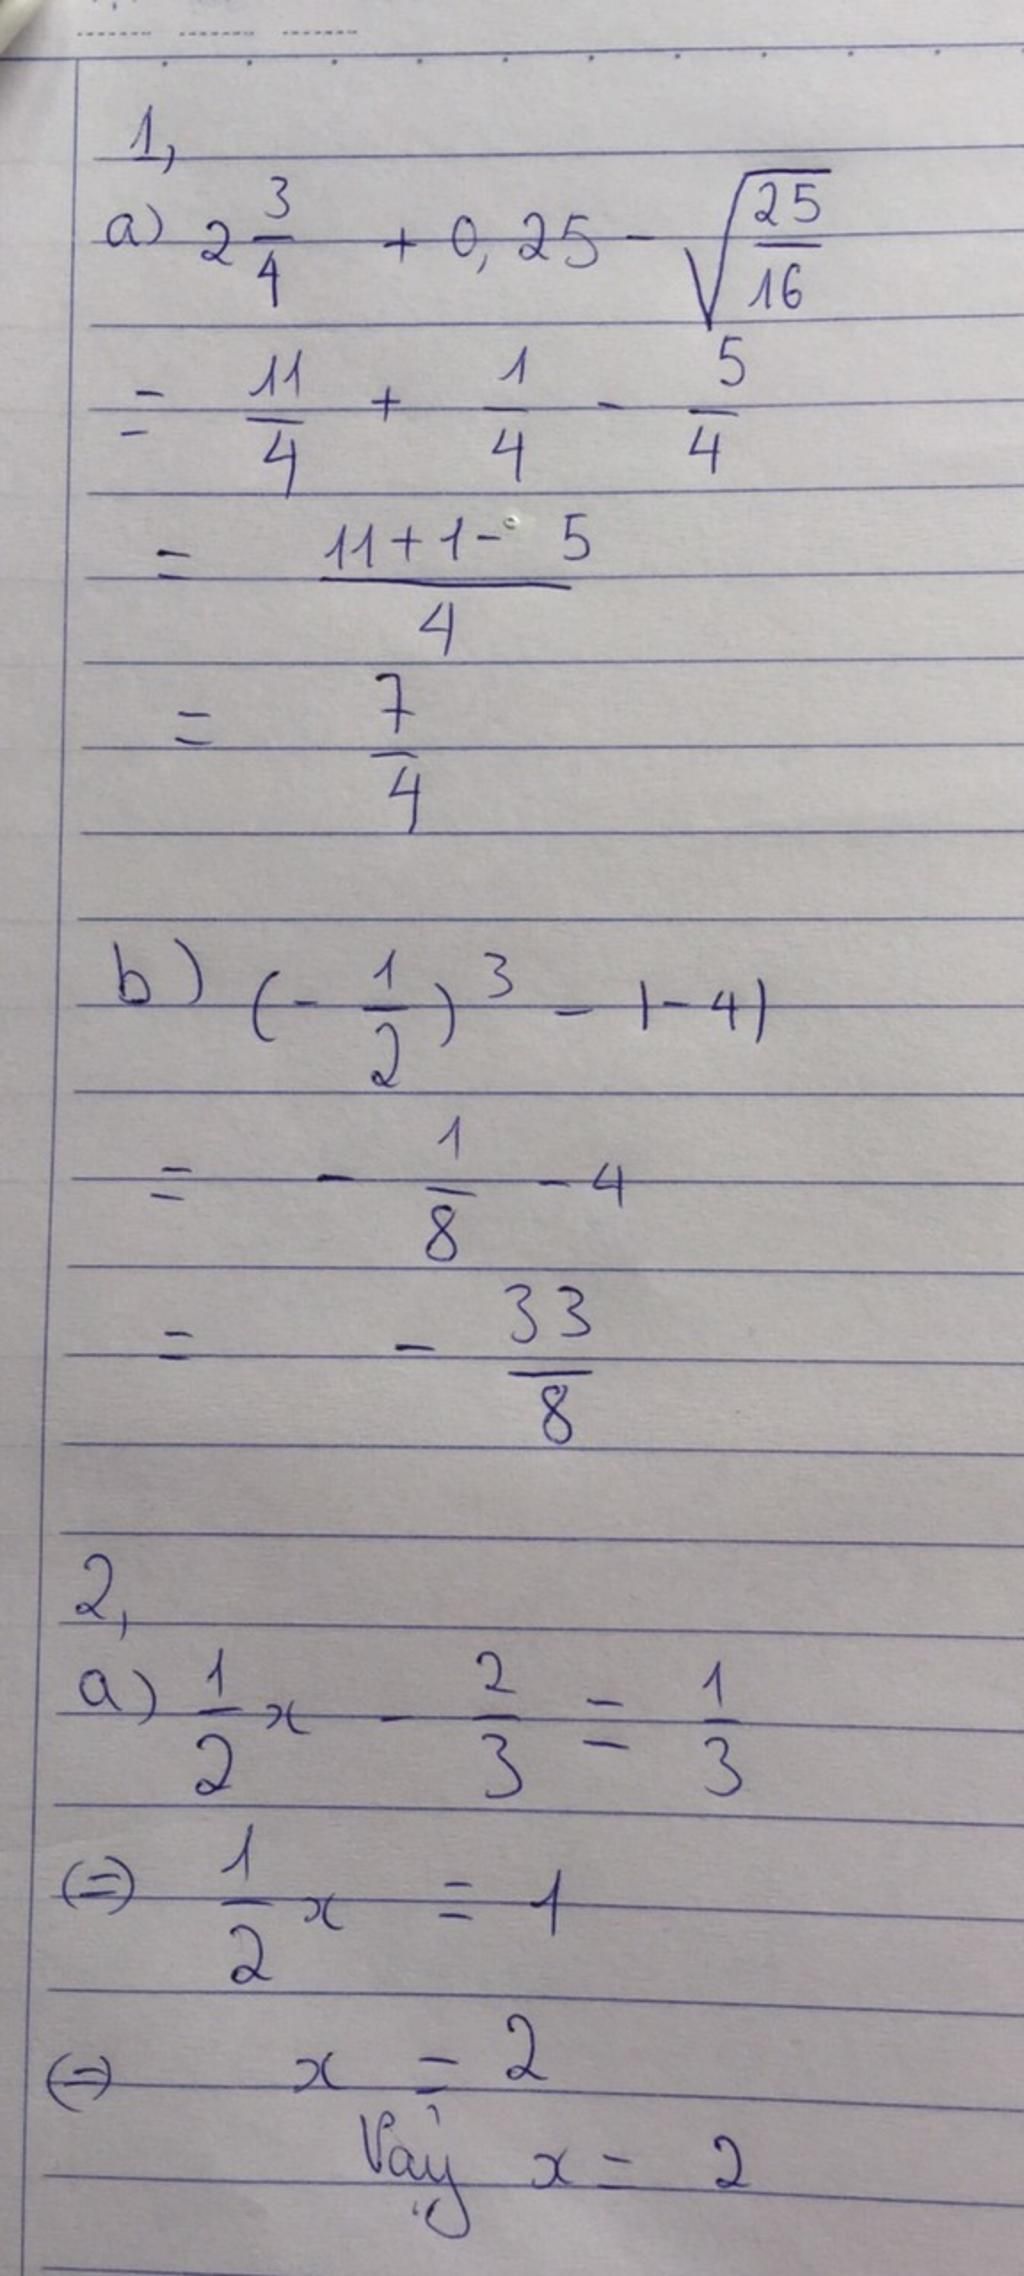 1,
a) 2 3/4 + 0,25 - √(25/16)
= 11/4 + 1/4 - 5/4
= (11+1-5)/4
= 7/4
b) (-1/2)³ - |-4|
= -1/8 - 4
= -33/8
2,
a) 1/2 x - 2/3 = 1/3
(=) 1/2 x = 1
(=) x = 2
Vậy x = 2